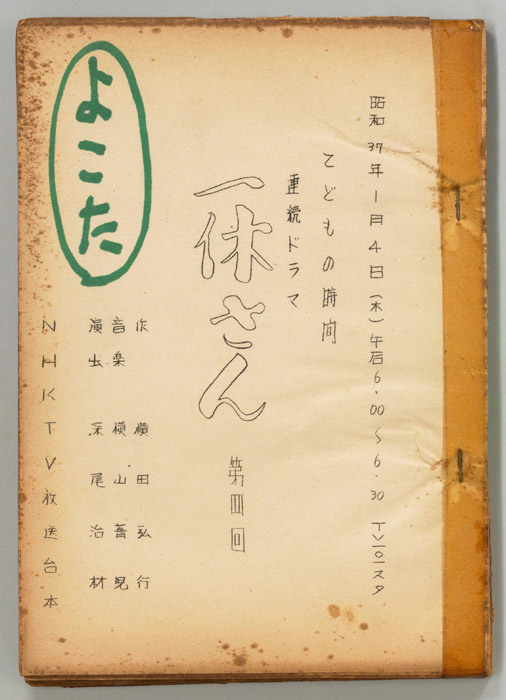 昭和37年1月4日(木)午后6.00〜6.30 TV101スタ
こどもの時間
連続ドラマ
一休さん 第四回
作 横田弘行
音楽 横山菁児
演出 深尾治材
NHKTV放送台本
よこた